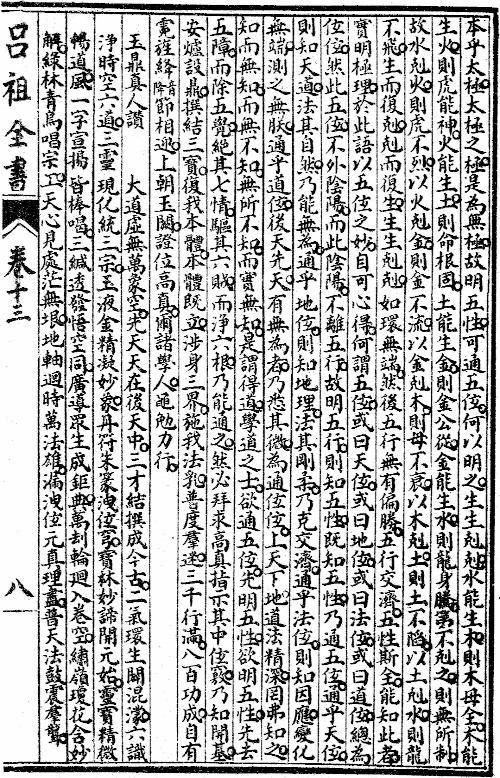 本乎太極太極之極是為無極故明五性可通五位何以明之生生剋剋水能生木則木母全木能
生火則虎能神火能生土則命根固土能生金則金公從金能生水則龍身騰第不剋之則無所制
故水剋火則虎不烈以火剋金則金不流以金剋木則母不衰以木剋土則土不陷以土剋水則龍
不飛生而復剋剋而復生生生剋剋如環無端然後五行無有偏勝五行交濟五性斯全能知此者
實明極理於此語以五位之妙自可心得何謂五位或曰天位或曰地位或曰法位或曰道位總為
位位然此五位不外陰陽而此陰陽不離五行故明五行則知五性既知五性乃通五位通乎天位
則知天道法其自然乃能無為通乎地位則知地理法其剛柔乃克交濟通乎法位則知因應變化
無端測之無朕通乎道位後天先天有無為者乃悉其微為通位位上天下地道法精深罔弗知之
知而無知而無不知無所不知而實無知是謂得道學道之士欲通五位先明五性欲明五性先去
五障而除五覺絕其七情驅其六賊而淨六根乃能通之然必拜求高真指示其中位竅乃知開基
安爐設鼎撰結三寶復我本體本體既立涉身三界施我法乳普度羣迷三千行滿八百功成自有
霓旌絳節相迎上朝玉闕證位高真爾諸學人黽勉力行
玉鼎真人讚　大道虛無萬象空先天天在後天中三才結撰成今古二氣環生闢混濛六識
淨時空六道三靈現化統三宗玉液金精凝妙象丹符朱篆洩位窮寶林妙諦開元始靈寶精微
暢道風一字宣揚皆棒喝三緘透發悟空同廣導眾生成鉅典萬刦輪迴入卷空繡嶺瓊花含妙
解綠林青鳥唱宗工天心見處茫無垠地軸迴時萬法雄漏洩位元真理盡普天法鼓震羣聾
呂祖全書　卷十三　八